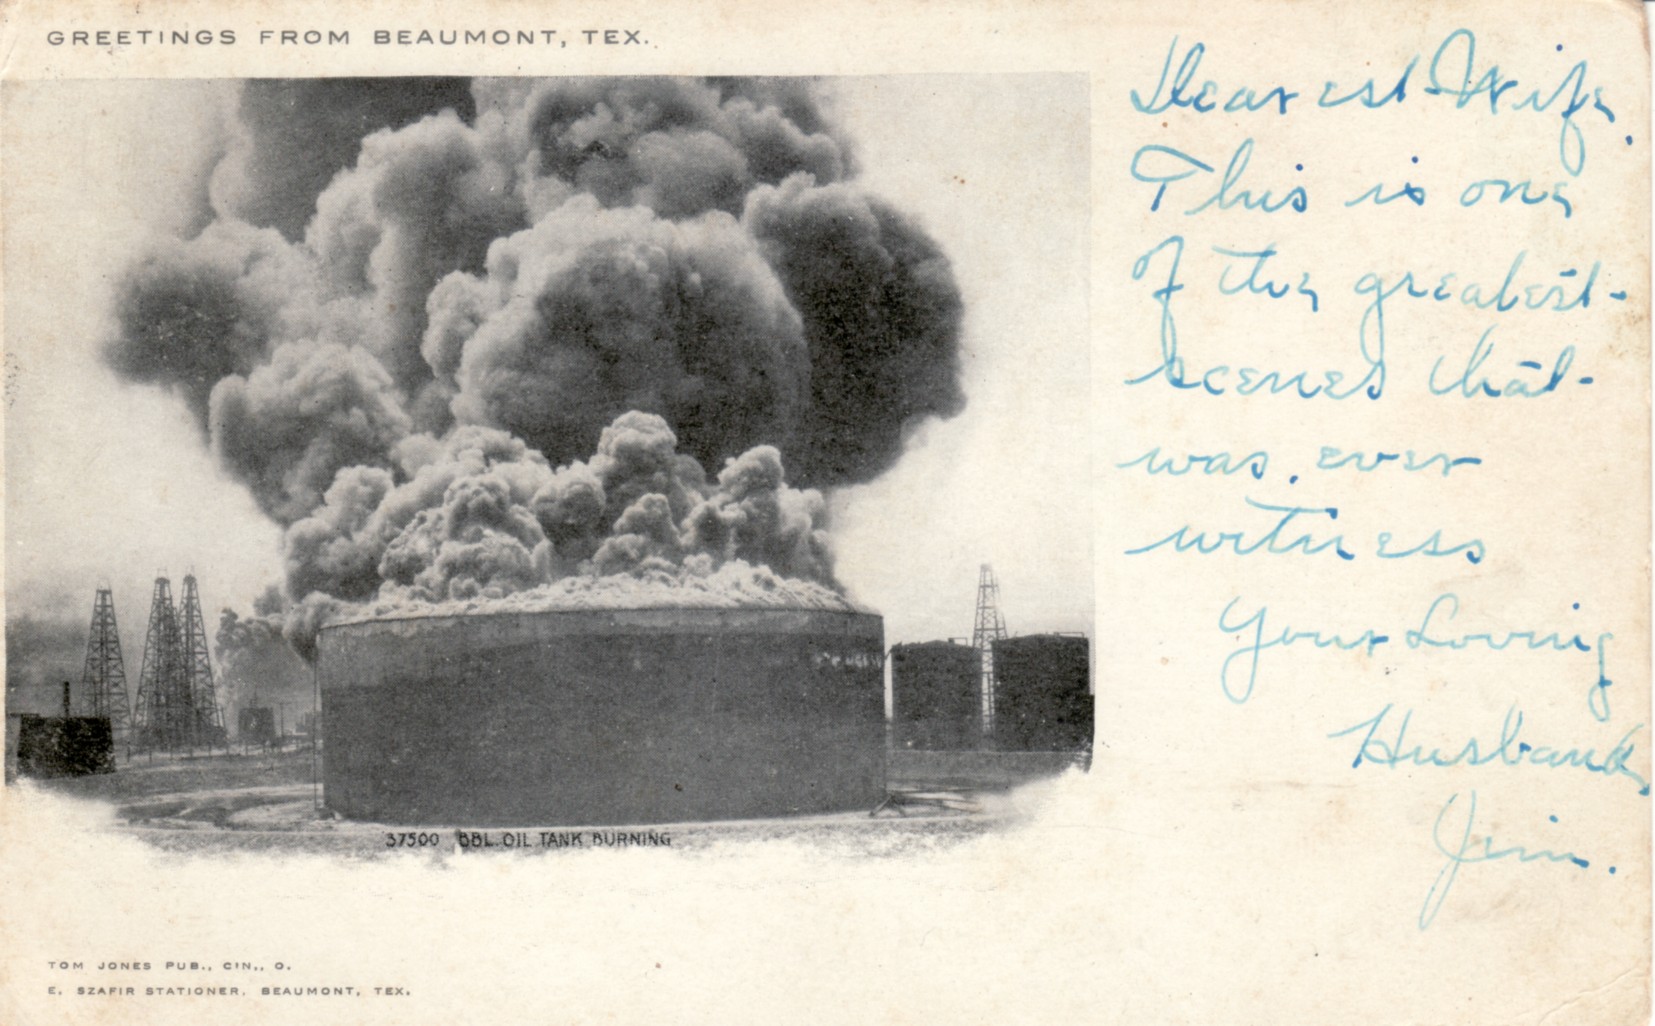 GREETINGS FROM BEAUMONT, TEX.
Dearest Wife.
This is one
of the greatest
scenes that
was ever
witness
Your Loving
Husband,
Jim.
37500 BBL. OIL TANK BURNING
TOM JONES PUB., CIN., O.
E. SZAFIR STATIONER, BEAUMONT, TEX.